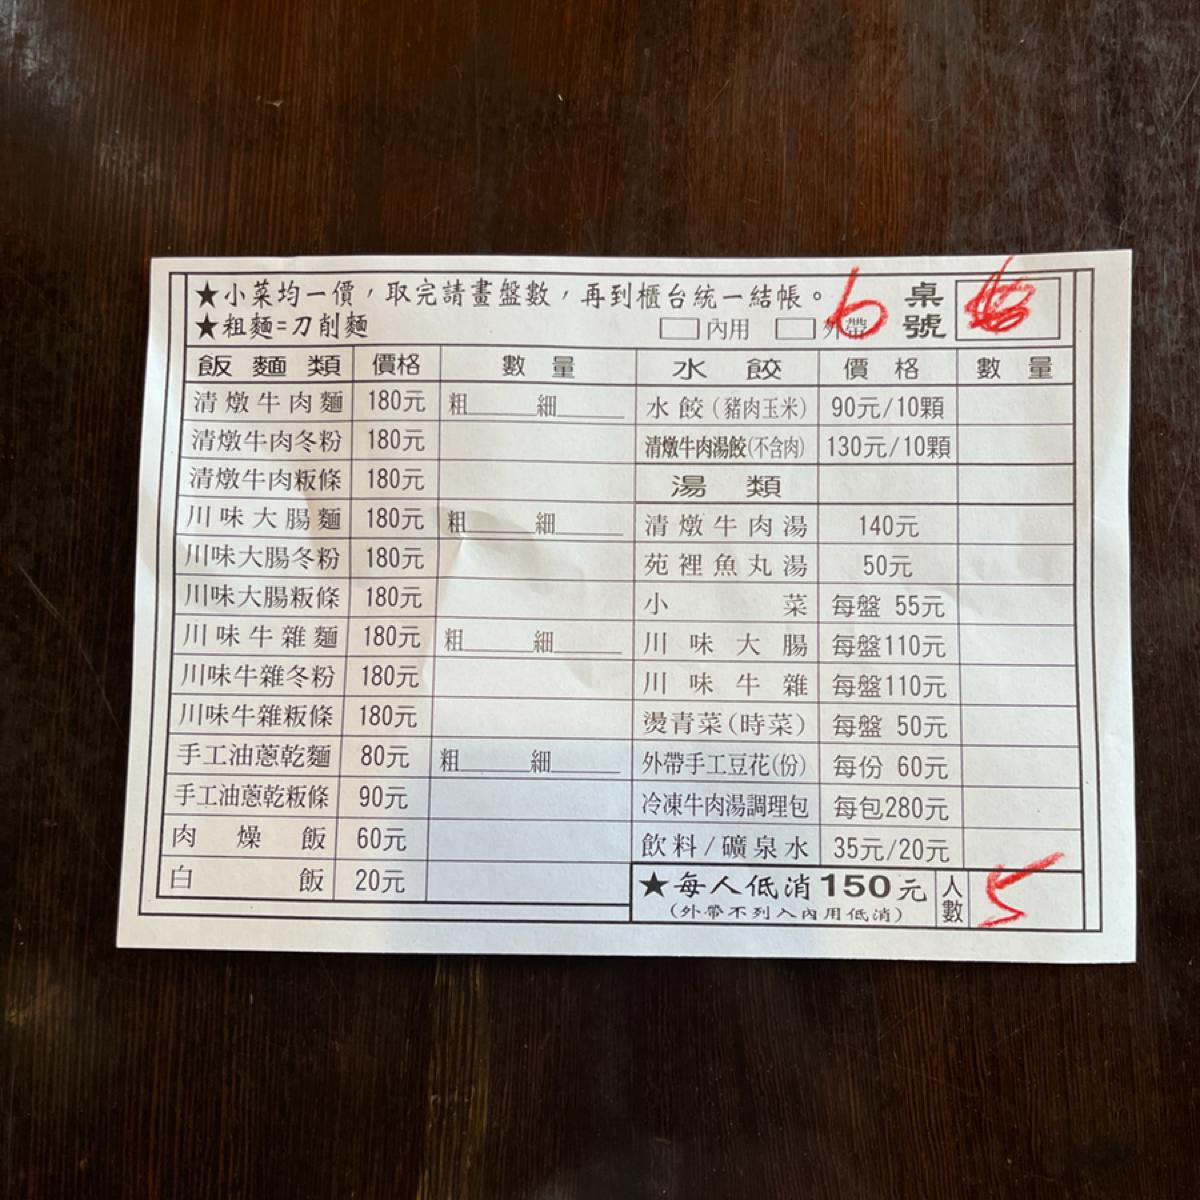 ★小菜均一價，取完請畫盤數，再到櫃台統一結帳。 6 桌號
★粗麵=刀削麵 □內用 □外帶
飯麵類 價格 數量 水餃 價格 數量
清燉牛肉麵 180元 粗______細______ 水餃(豬肉玉米) 90元/10顆
清燉牛肉冬粉 180元 清燉牛肉湯餃(不含肉) 130元/10顆
清燉牛肉粄條 180元 湯類
川味大腸麵 180元 粗______細______ 清燉牛肉湯 140元
川味大腸冬粉 180元 苑裡魚丸湯 50元
川味大腸粄條 180元 小菜 每盤 55元
川味牛雜麵 180元 粗______細______ 川味大腸 每盤110元
川味牛雜冬粉 180元 川味牛雜 每盤110元
川味牛雜粄條 180元 燙青菜(時菜) 每盤 50元
手工油蔥乾麵 80元 粗______細______ 外帶手工豆花(份) 每份 60元
手工油蔥乾粄條 90元 冷凍牛肉湯調理包 每包280元
肉燥飯 60元 飲料/礦泉水 35元/20元
白飯 20元 ★每人低消150元 人數 5
(外帶不列入內用低消)